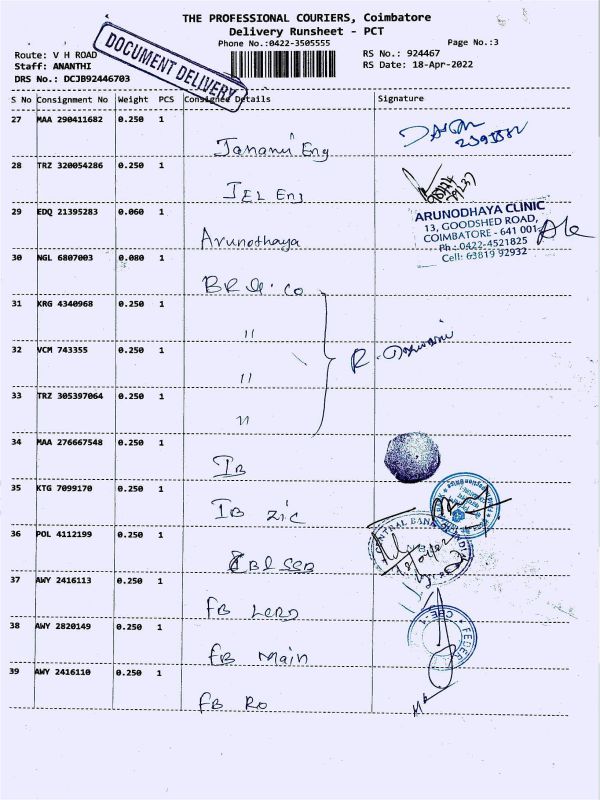 THE PROFESSIONAL COURIERS, Coimbatore
Delivery Runsheet - PCT
Phone No.:0422-3505555
Page No.:3
Route: V H ROAD
RS No.: 924467
Staff: ANANTHI
RS Date: 18-Apr-2022
DRS No.: DCJB92446703
DOCUMENT DELIVERY
S No Consignment No Weight PCS Consignee Details Signature
27 MAA 290411682 0.250 1
Eng
28 TRZ 320054286 0.250 1
JEL Eng
29 EDQ 21395283 0.060 1
Arunothaya
ARUNODHAYA CLINIC
13, GOODSHED ROAD,
COIMBATORE - 641 001
Ph : 0422-4521825
Cell: 63819 92932
30 NGL 6807003 0.080 1
31 KRG 4340968 0.250 1
"
32 VCM 743355 0.250 1
"
33 TRZ 305397064 0.250 1
"
34 MAA 276667548 0.250 1
IB
35 KTG 7099170 0.250 1
IB ZIC
36 POL 4112199 0.250 1
CENTRAL BANK
37 AWY 2416113 0.250 1
FB
38 AWY 2820149 0.250 1
FB Main
39 AWY 2416110 0.250 1
FB RO